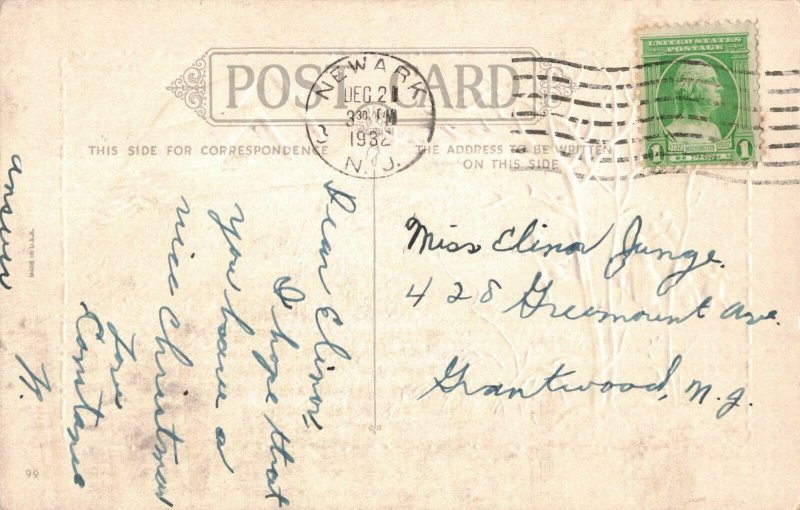 POST CARD
NEWARK
DEC 2
3 30 PM
1932
N.J.
UNITED STATES
POSTAGE
1 1
THIS SIDE FOR CORRESPONDENCE
THE ADDRESS TO BE WRITTEN
ON THIS SIDE
Dear Elinor,
I hope that
you have a
nice Christmas
Love
Constance
answer
Miss Elinor Junge.
428 Greemount Ave.
Grantwood, N.J.
MADE IN U.S.A.
99